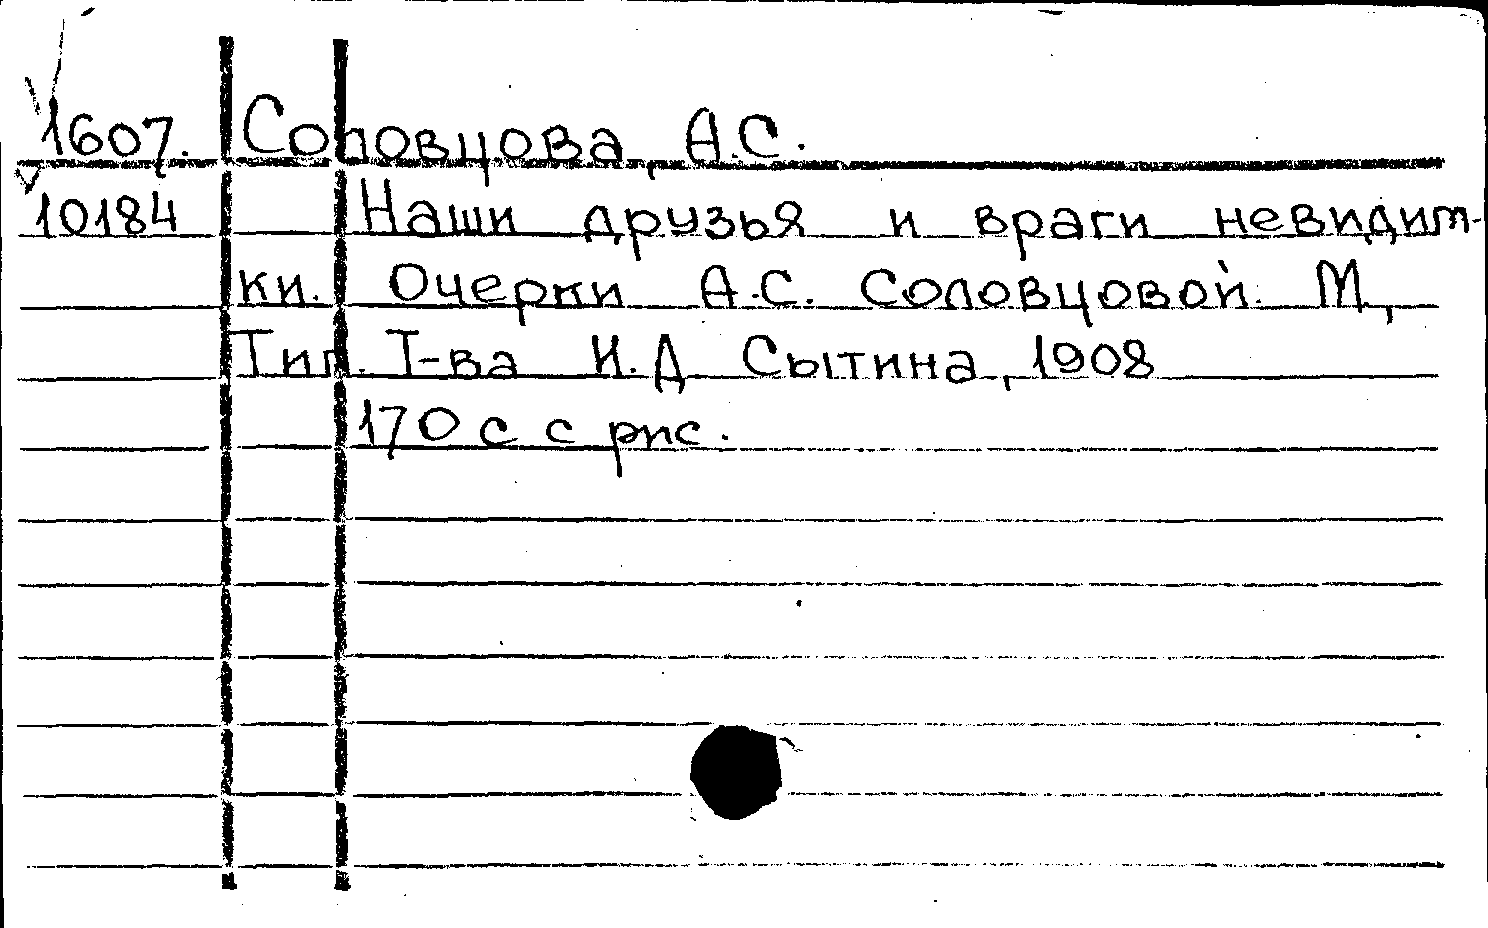 1607. Соловцова, А.С.
10184 Наши друзья и враги невидим-
ки. Очерки А.С. Соловцовой. М.,
Тип. Т-ва И.Д Сытина, 1908
170 с с рис.